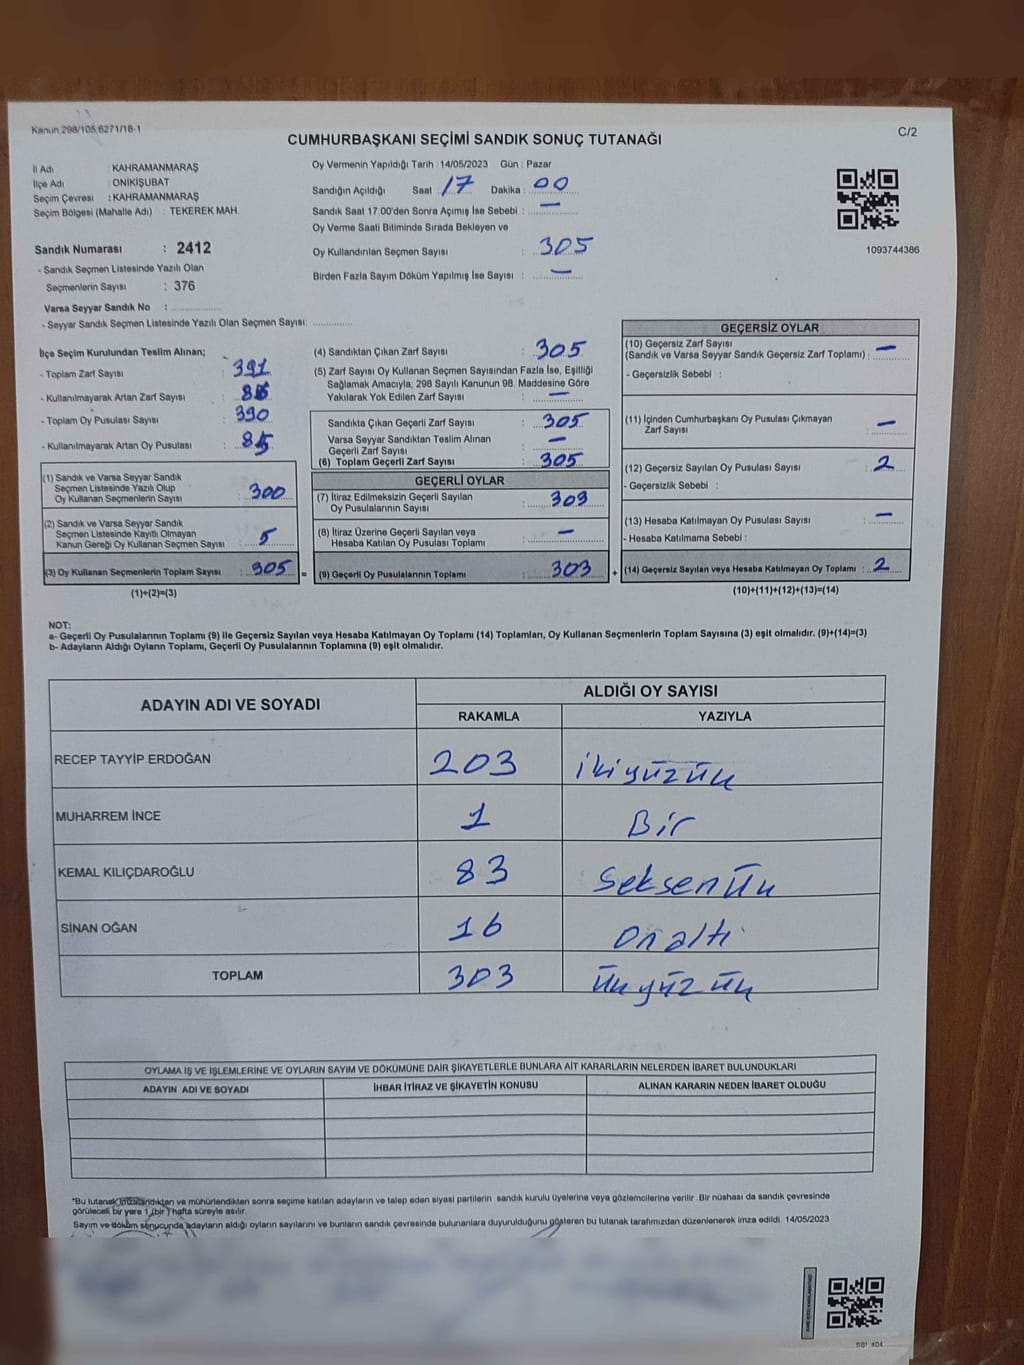 Kanun 298/105,6271/18-1
C/2
CUMHURBAŞKANI SEÇİMİ SANDIK SONUÇ TUTANAĞI
İl Adı : KAHRAMANMARAŞ
İlçe Adı : ONİKİŞUBAT
Seçim Çevresi : KAHRAMANMARAŞ
Seçim Bölgesi (Mahalle Adı) : TEKEREK MAH.
Sandık Numarası : 2412
- Sandık Seçmen Listesinde Yazılı Olan
Seçmenlerin Sayısı : 376
Varsa Seyyar Sandık No :
- Seyyar Sandık Seçmen Listesinde Yazılı Olan Seçmen Sayısı:
Oy Vermenin Yapıldığı Tarih : 14/05/2023 Gün : Pazar
Sandığın Açıldığı Saat : 17 Dakika : 00
Sandık Saat 17:00'den Sonra Açımış İse Sebebi : —
Oy Verme Saati Bitiminde Sırada Bekleyen ve
Oy Kullandırılan Seçmen Sayısı : 305
Birden Fazla Sayım Döküm Yapılmış İse Sayısı : —
1093744386
İlçe Seçim Kurulundan Teslim Alınan;
- Toplam Zarf Sayısı : 391
- Kullanılmayarak Artan Zarf Sayısı :
- Toplam Oy Pusulası Sayısı : 390
- Kullanılmayarak Artan Oy Pusulası :
(1) Sandık ve Varsa Seyyar Sandık
Seçmen Listesinde Yazılı Olup
Oy Kullanan Seçmenlerin Sayısı : 300
(2) Sandık ve Varsa Seyyar Sandık
Seçmen Listesinde Kayıtlı Olmayan
Kanun Gereği Oy Kullanan Seçmen Sayısı : 5
(3) Oy Kullanan Seçmenlerin Toplam Sayısı : 305 =
(1)+(2)=(3)
(4) Sandıktan Çıkan Zarf Sayısı : 305
(5) Zarf Sayısı Oy Kullanan Seçmen Sayısından Fazla İse, Eşitliği
Sağlamak Amacıyla; 298 Sayılı Kanunun 98. Maddesine Göre
Yakılarak Yok Edilen Zarf Sayısı : —
Sandıkta Çıkan Geçerli Zarf Sayısı : 305
Varsa Seyyar Sandıktan Teslim Alınan
Geçerli Zarf Sayısı : —
(6) Toplam Geçerli Zarf Sayısı : 305
GEÇERLİ OYLAR
(7) İtiraz Edilmeksizin Geçerli Sayılan
Oy Pusulalarının Sayısı : 303
(8) İtiraz Üzerine Geçerli Sayılan veya
Hesaba Katılan Oy Pusulası Toplamı : —
(9) Geçerli Oy Pusulalarının Toplamı : 303 +
GEÇERSİZ OYLAR
(10) Geçersiz Zarf Sayısı
(Sandık ve Varsa Seyyar Sandık Geçersiz Zarf Toplamı) : —
- Geçersizlik Sebebi :
(11) İçinden Cumhurbaşkanı Oy Pusulası Çıkmayan
Zarf Sayısı : —
(12) Geçersiz Sayılan Oy Pusulası Sayısı : 2
- Geçersizlik Sebebi :
(13) Hesaba Katılmayan Oy Pusulası Sayısı : —
- Hesaba Katılmama Sebebi :
(14) Geçersiz Sayılan veya Hesaba Katılmayan Oy Toplamı : 2
(10)+(11)+(12)+(13)=(14)
NOT:
a- Geçerli Oy Pusulalarının Toplamı (9) ile Geçersiz Sayılan veya Hesaba Katılmayan Oy Toplamı (14) Toplamları, Oy Kullanan Seçmenlerin Toplam Sayısına (3) eşit olmalıdır. (9)+(14)=(3)
b- Adayların Aldığı Oyların Toplamı, Geçerli Oy Pusulalarının Toplamına (9) eşit olmalıdır.
ADAYIN ADI VE SOYADI
ALDIĞI OY SAYISI
RAKAMLA YAZIYLA
RECEP TAYYİP ERDOĞAN 203 ikiyüzüç
MUHARREM İNCE 1 Bir
KEMAL KILIÇDAROĞLU 83 Seksenüç
SİNAN OĞAN 16 Onaltı
TOPLAM 303 üçyüzüç
OYLAMA İŞ VE İŞLEMLERİNE VE OYLARIN SAYIM VE DÖKÜMÜNE DAİR ŞİKAYETLERLE BUNLARA AİT KARARLARIN NELERDEN İBARET BULUNDUKLARI
ADAYIN ADI VE SOYADI İHBAR İTİRAZ VE ŞİKAYETİN KONUSU ALINAN KARARIN NEDEN İBARET OLDUĞU
"Bu tutanak imzalandıktan ve mühürlendikten sonra seçime katılan adayların ve talep eden siyasi partilerin sandık kurulu üyelerine veya gözlemcilerine verilir. Bir nüshası da sandık çevresinde
görülecek bir yere 1 (bir) hafta süreyle asılır.
Sayım ve döküm sonucunda adayların aldığı oyların sayılarını ve bunların sandık çevresinde bulunanlara duyurulduğunu gösteren bu tutanak tarafımızdan düzenlenerek imza edildi. 14/05/2023